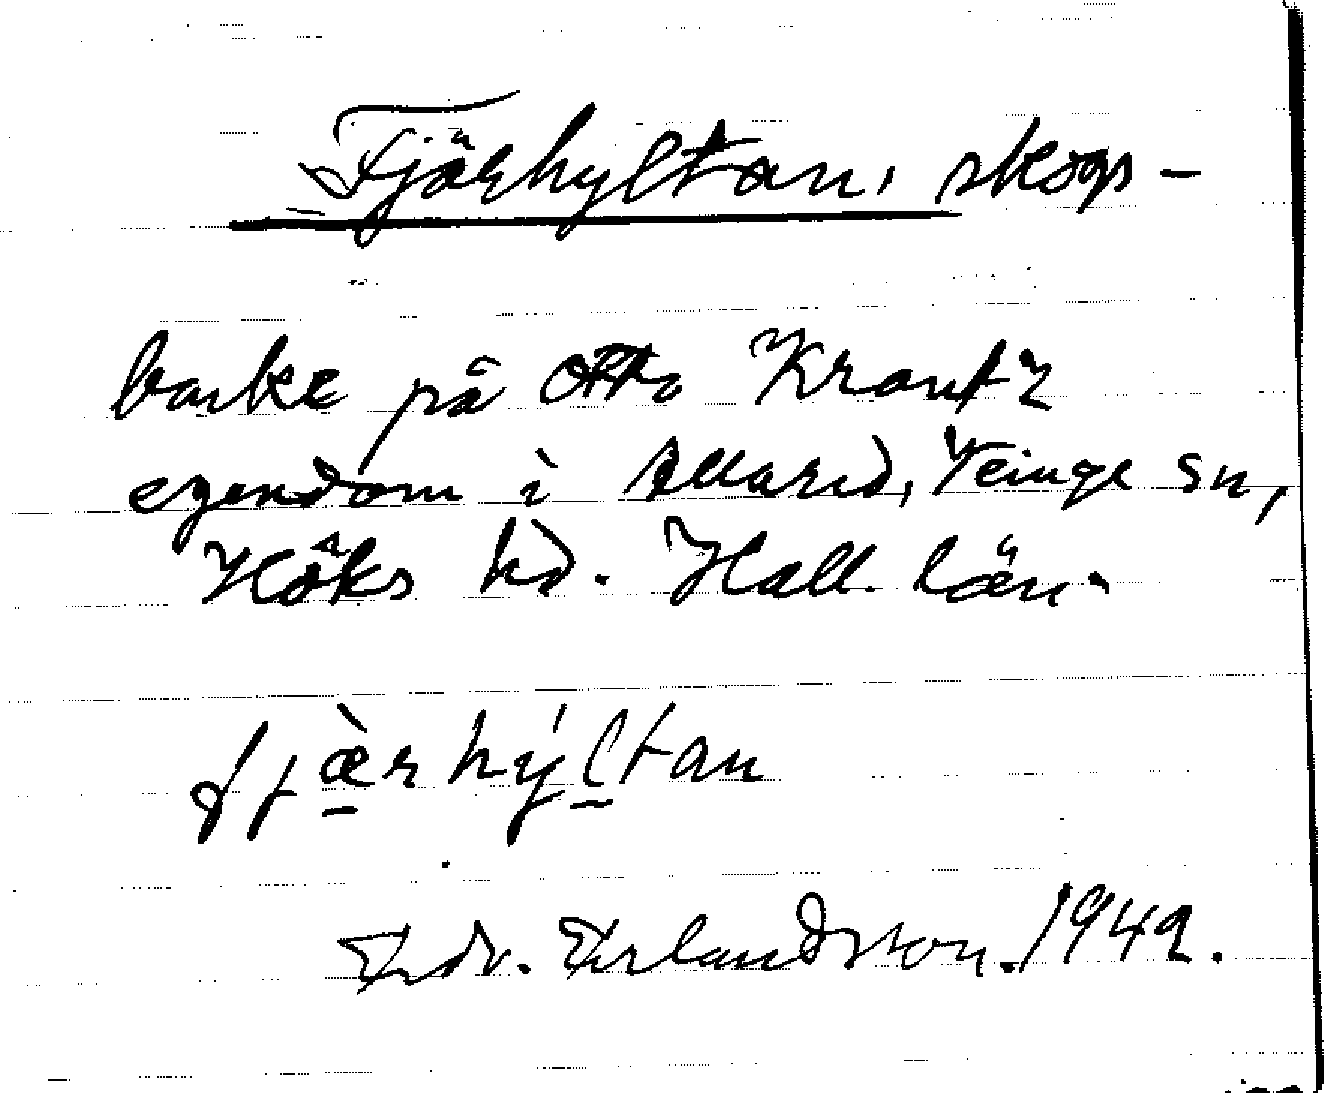 Fjärhyltan, skogs-
backe på Otto Krantz
egendom i Allared, Veinge sn,
Höks hd. Hall. län.
fjæ̀rhýltan
Edv. Erlandsson. 1942.